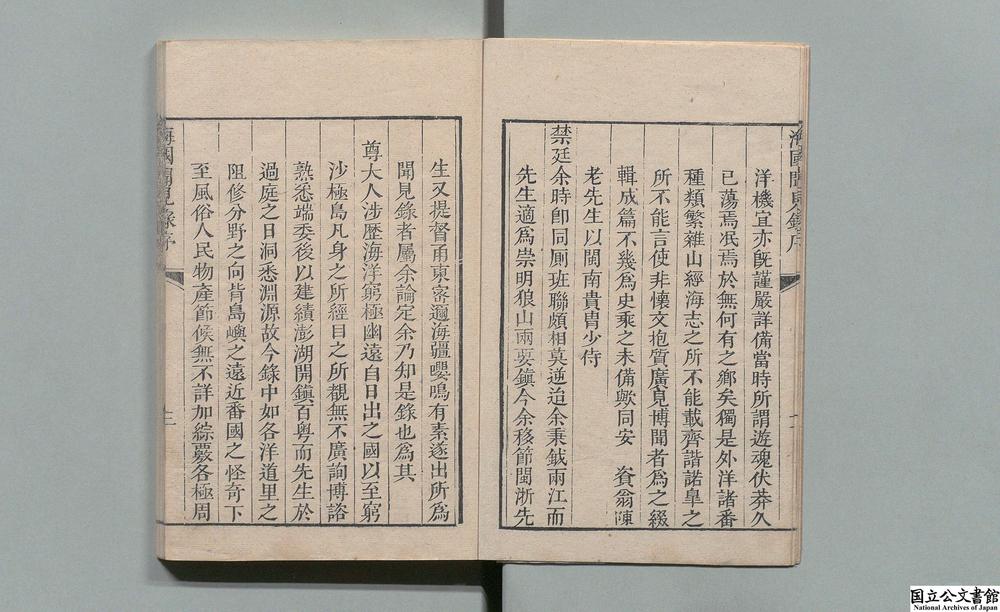 海國聞見錄序
洋機宜亦旣謹嚴詳備當時所謂遊魂伏莽久
已蕩焉泯焉於無何有之鄉矣獨是外洋諸番
種類繁雜山經海志之所不能載齊諧諾臯之
所不能言使非懷文抱質廣見博聞者爲之綴
輯成篇不幾爲史乘之未備歟同安 資翁陳
老先生以閩南貴胄少侍
禁廷余時卽同厠班聯頗相莫逆迨余秉鉞兩江而
先生適爲崇明狼山兩要鎮今余移節閩浙先
二
生又提督甬東密邇海疆嚶鳴有素遂出所爲
聞見錄者屬余論定余乃知是錄也爲其
尊大人涉歷海洋窮極幽遠自日出之國以至窮
沙極島凡身之所經目之所覩無不廣詢博諮
熟悉端委後以建績澎湖開鎮百粤而先生於
過庭之日洞悉淵源故今錄中如各洋道里之
阻修分野之向背島嶼之遠近番國之怪奇下
至風俗人民物產節候無不詳加綜覈各極周
海國聞見錄序
三
National Archives of Japan
国立公文書館